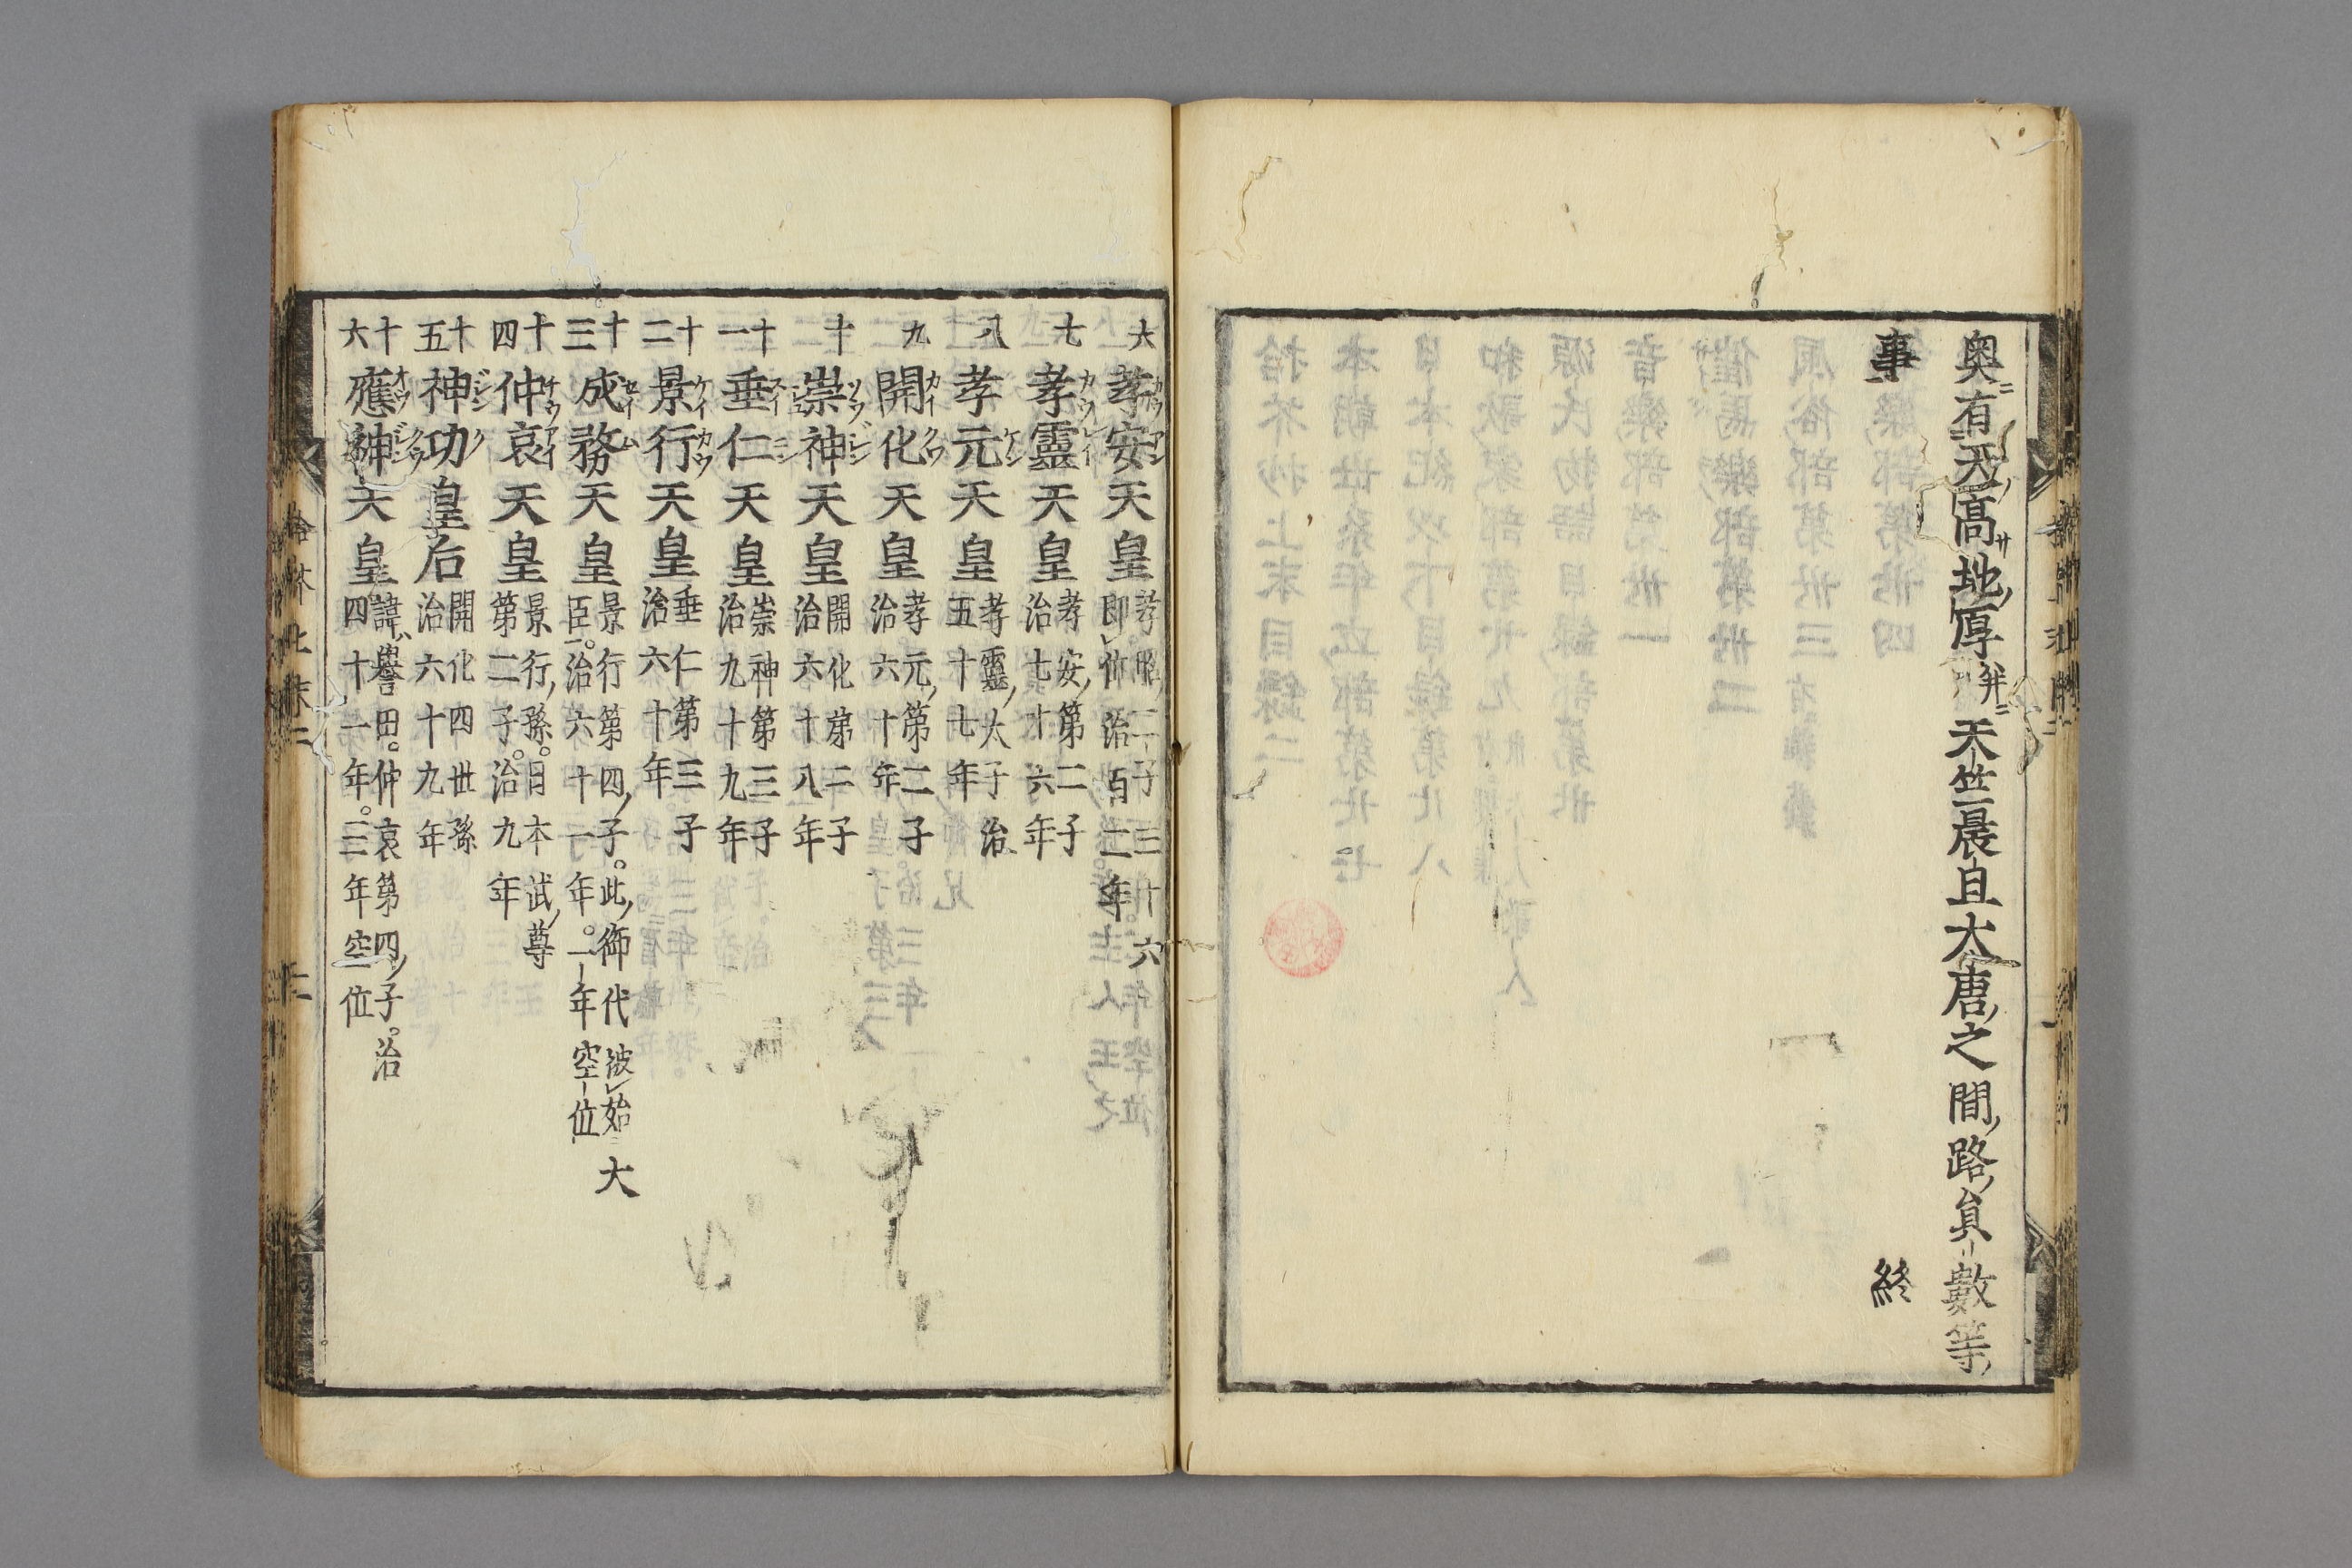 奥ニ有天ノ高サ地ノ厚サ并ニ天竺晨旦大唐ノ之間ノ路ノ員數等ノ
事 終
六 孝安天皇 孝昭ノ二子 三十六
即位 治百二年
七 孝靈天皇 孝安ノ第二子
治七十六年
八 孝元天皇 孝靈ノ太子治
五十七年
九 開化天皇 孝元ノ第二子
治六十年
十 崇神天皇 開化第二子
治六十八年
十一 垂仁天皇 崇神第三子
治九十九年
十二 景行天皇 垂仁第三子
治六十年
十三 成務天皇 景行第四ノ子。此ノ御代始大
臣。治六十一年。一年空位
十四 仲哀天皇 景行ノ孫。日本武ノ尊
第二子。治九年
十五 神功皇后 開化四世孫
治六十九年
十六 應神天皇 諱ハ譽田。仲哀第四ノ子。治
四十一年。二年空位